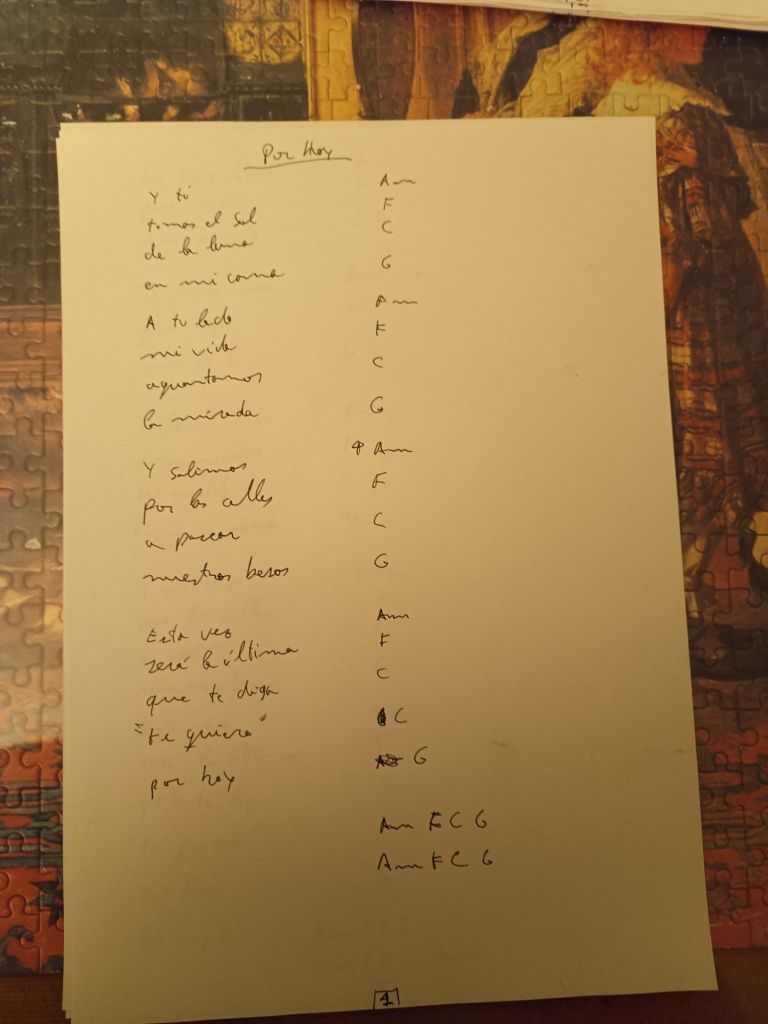 Por Hoy
Y tú Am
tomas el sol F
de la luna C
en mi cama G
A tu lado Am
mi vida F
aguantamos C
la mirada G
Y salimos Am
por las calles F
a pasear C
nuestros besos G
Esta vez Am
será la última F
que te diga C
"te quiero" C
por hoy G
Am F C G
Am F C G
1